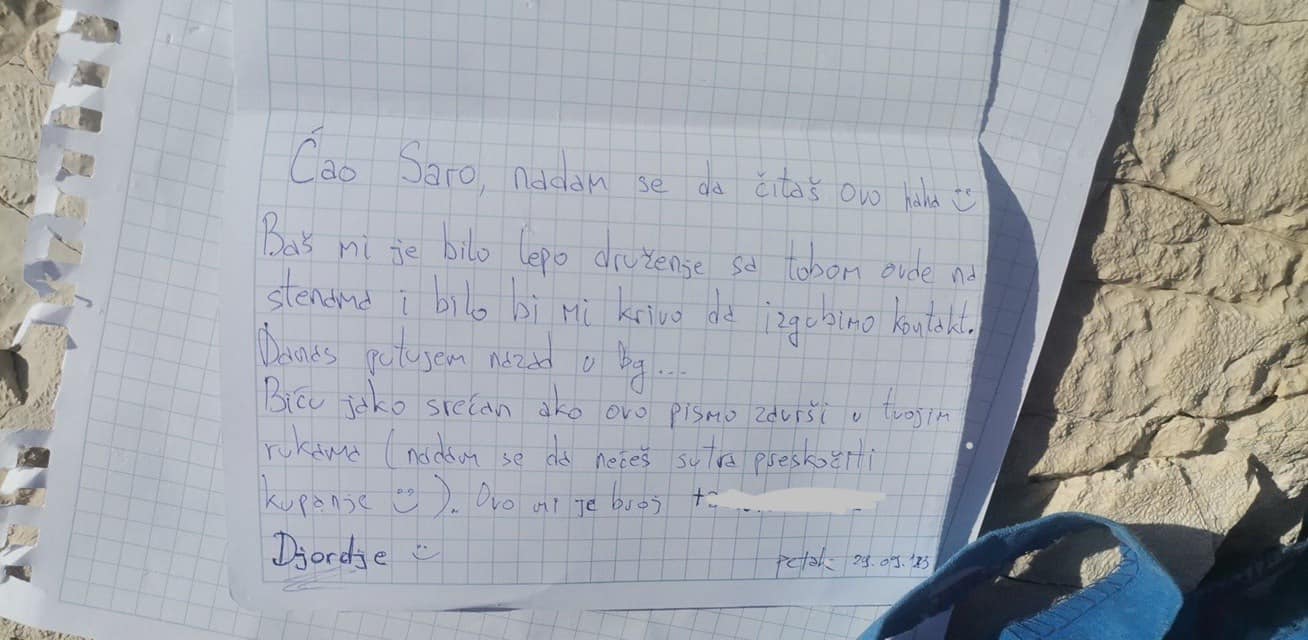 Ćao Saro, nadam se da čitaš ovo haha :)
Baš mi je bilo lepo druženje sa tobom ovde na
stenama i bilo bi mi krivo da izgubimo kontakt.
Danas putujem nazad u bg...
Biću jako srećan ako ovo pismo završi u tvojim
rukama (nadam se da nećeš sutra preskočiti
kupanje :) ). Ovo mi je broj
Djordje :)
Petak 29.09.'23